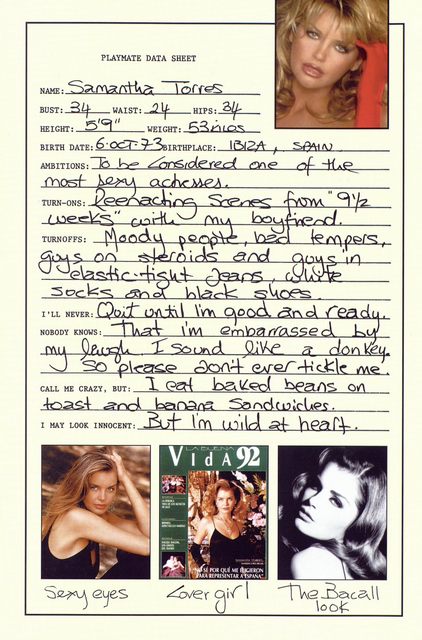 PLAYMATE DATA SHEET
NAME: Samantha Torres
BUST: 34 WAIST: 24 HIPS: 34
HEIGHT: 5'9" WEIGHT: 53 kilos
BIRTH DATE: 6·OCT·73 BIRTHPLACE: IBIZA, SPAIN
AMBITIONS: To be considered one of the
most sexy actresses.
TURN-ONS: Reenacting scenes from "9½
weeks" with my boyfriend.
TURNOFFS: Moody people, bad tempers,
guys on steroids and guys in
elastic-tight jeans, white
socks and black shoes.
I'LL NEVER: Quit until I'm good and ready.
NOBODY KNOWS: That I'm embarrassed by
my laugh I sound like a donkey.
So please don't ever tickle me.
CALL ME CRAZY, BUT: I eat baked beans on
toast and banana sandwiches.
I MAY LOOK INNOCENT: But I'm wild at heart.
LA BUENA
VIdA 92
¿NI SÉ POR QUÉ ME ELIGIERON
PARA REPRESENTAR A ESPAÑA"
Sexy eyes
Cover girl
The Bacall
look